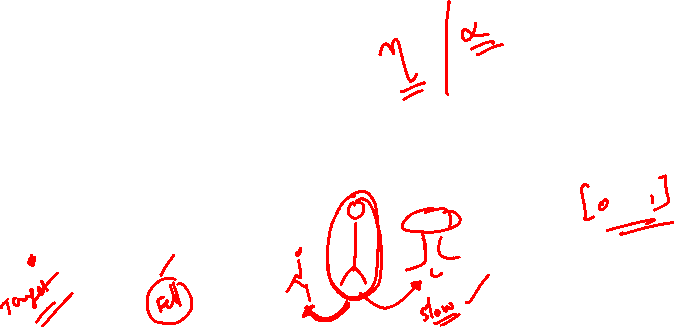 η | α
[0 1]
Target
Fell
slow